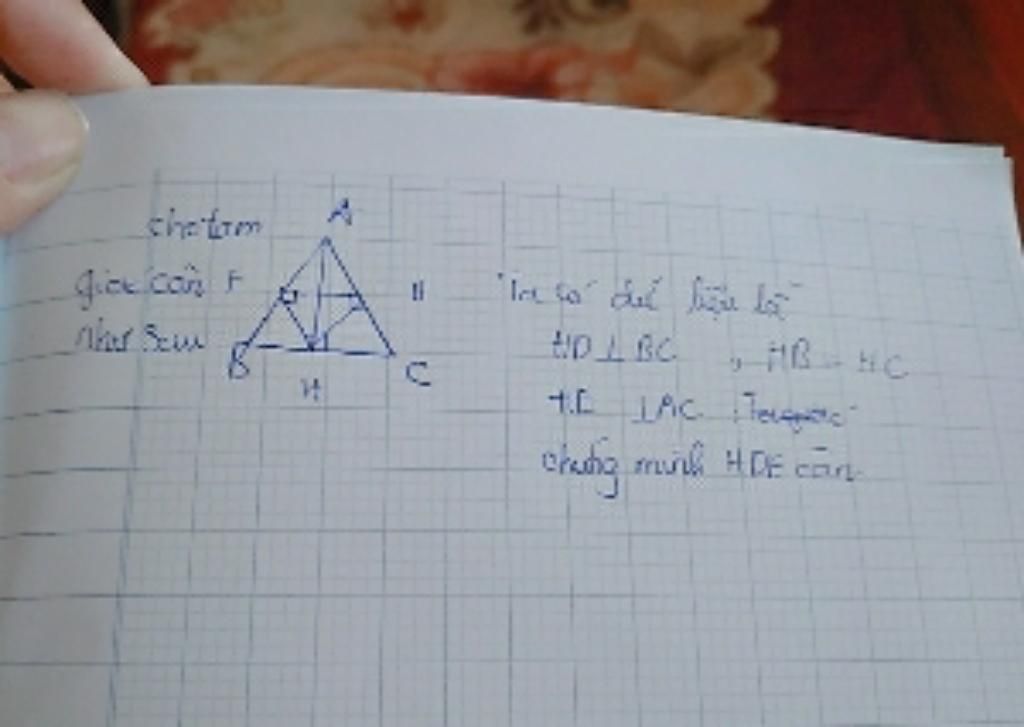 A
cho tam
giác cân F
như sau
B
C
H
Ta có dữ liệu là
HD ⊥ BC , HB = HC
HE ⊥ AC
chứng minh HDE cân